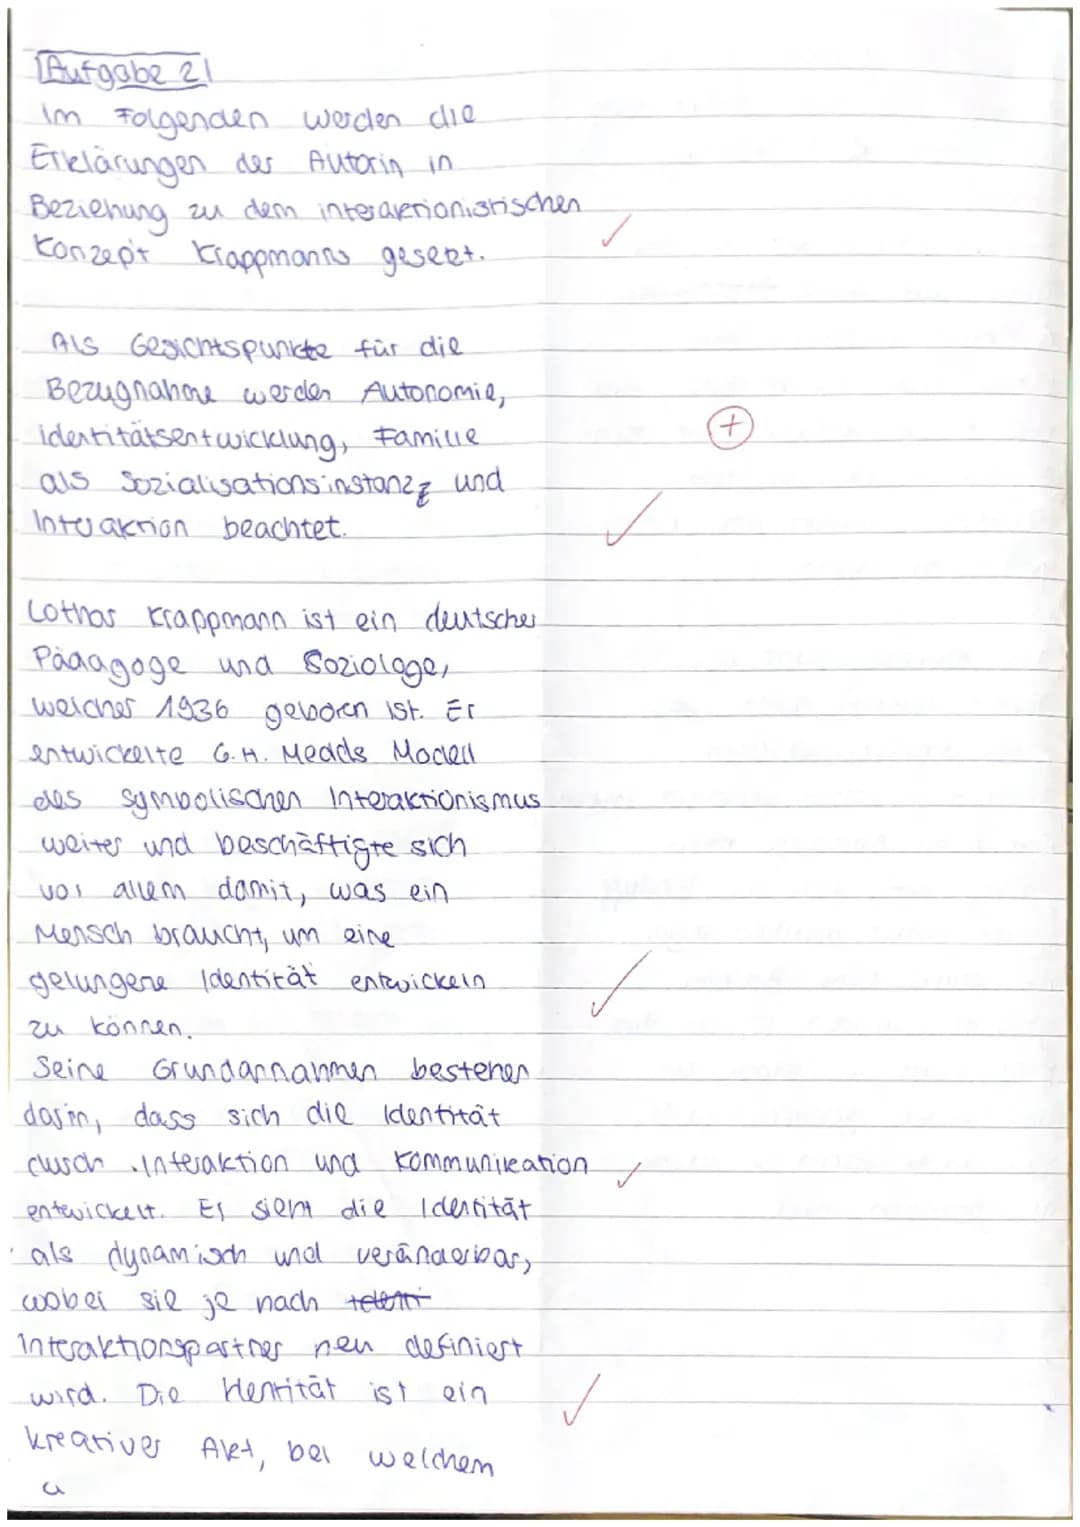 Aufgabe 2
Im Folgenden werden die
Erklärungen der Autorin in
Beziehung zu dem interaktionistischen
Konzept Krappmanns gesetzt.
Als Gesichtspunkte für die
Bezugnahme werden Autonomie,
identitätsentwicklung, Familie
als Sozialisationsinstanz und
Interaktion beachtet.
+
Lothar Krappmann ist ein deutscher
Pädagoge und Soziologe,
welcher 1936 geboren ist. Er
entwickelte G.H. Meads Modell
des symbolischen Interaktionismus
weiter und beschäftigte sich
vor allem damit, was ein
Mensch braucht, um eine
gelungene Identität entwickeln
zu können.
Seine Grundannahmen bestehen
darin, dass sich die Identität
durch Interaktion und Kommunikation
entwickelt. Er sieht die Identität
als dynamisch und veränderbar,
wobei sie je nach
Interaktionspartner neu definiert
wird. Die Identität ist ein
kreativer Akt, bei welchem